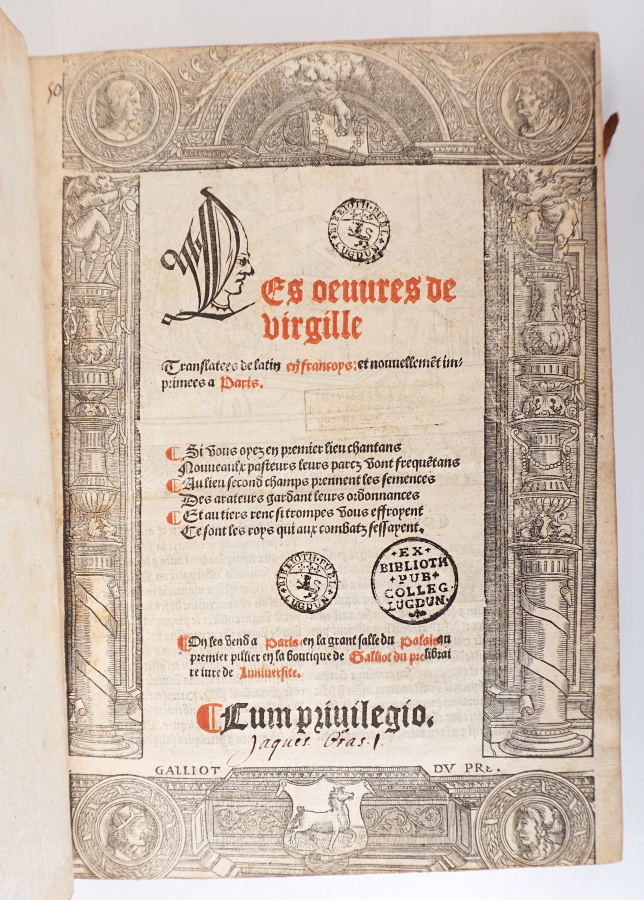 50
BIBLIOTH·PUBL· LUGDUN
Les oeuures de
virgille
Translatees de latin en francoys: et nouuellemēt im-
primees a Paris.
Si vous oyez en premier lieu chantans
Nouueaulx pasteurs leurs parcz vont frequētans
Au lieu second champs prennent les semences
Des arateurs gardant leurs ordonnances
Et au tiers renc si trompes vous effroyent
Ce sont les roys qui aux combatz sessayent.
BIBLIOTH·PUBL· LUGDUN
EX
BIBLIOTH
PUB
COLLEG
LUGDUN
On les vend a Paris en la grant salle du Palais au
premier pillier en la boutique de Galliot du pre librai
re iure de Luniuersite.
Cum priuilegio.
Jaques
GALLIOT DV PRE.